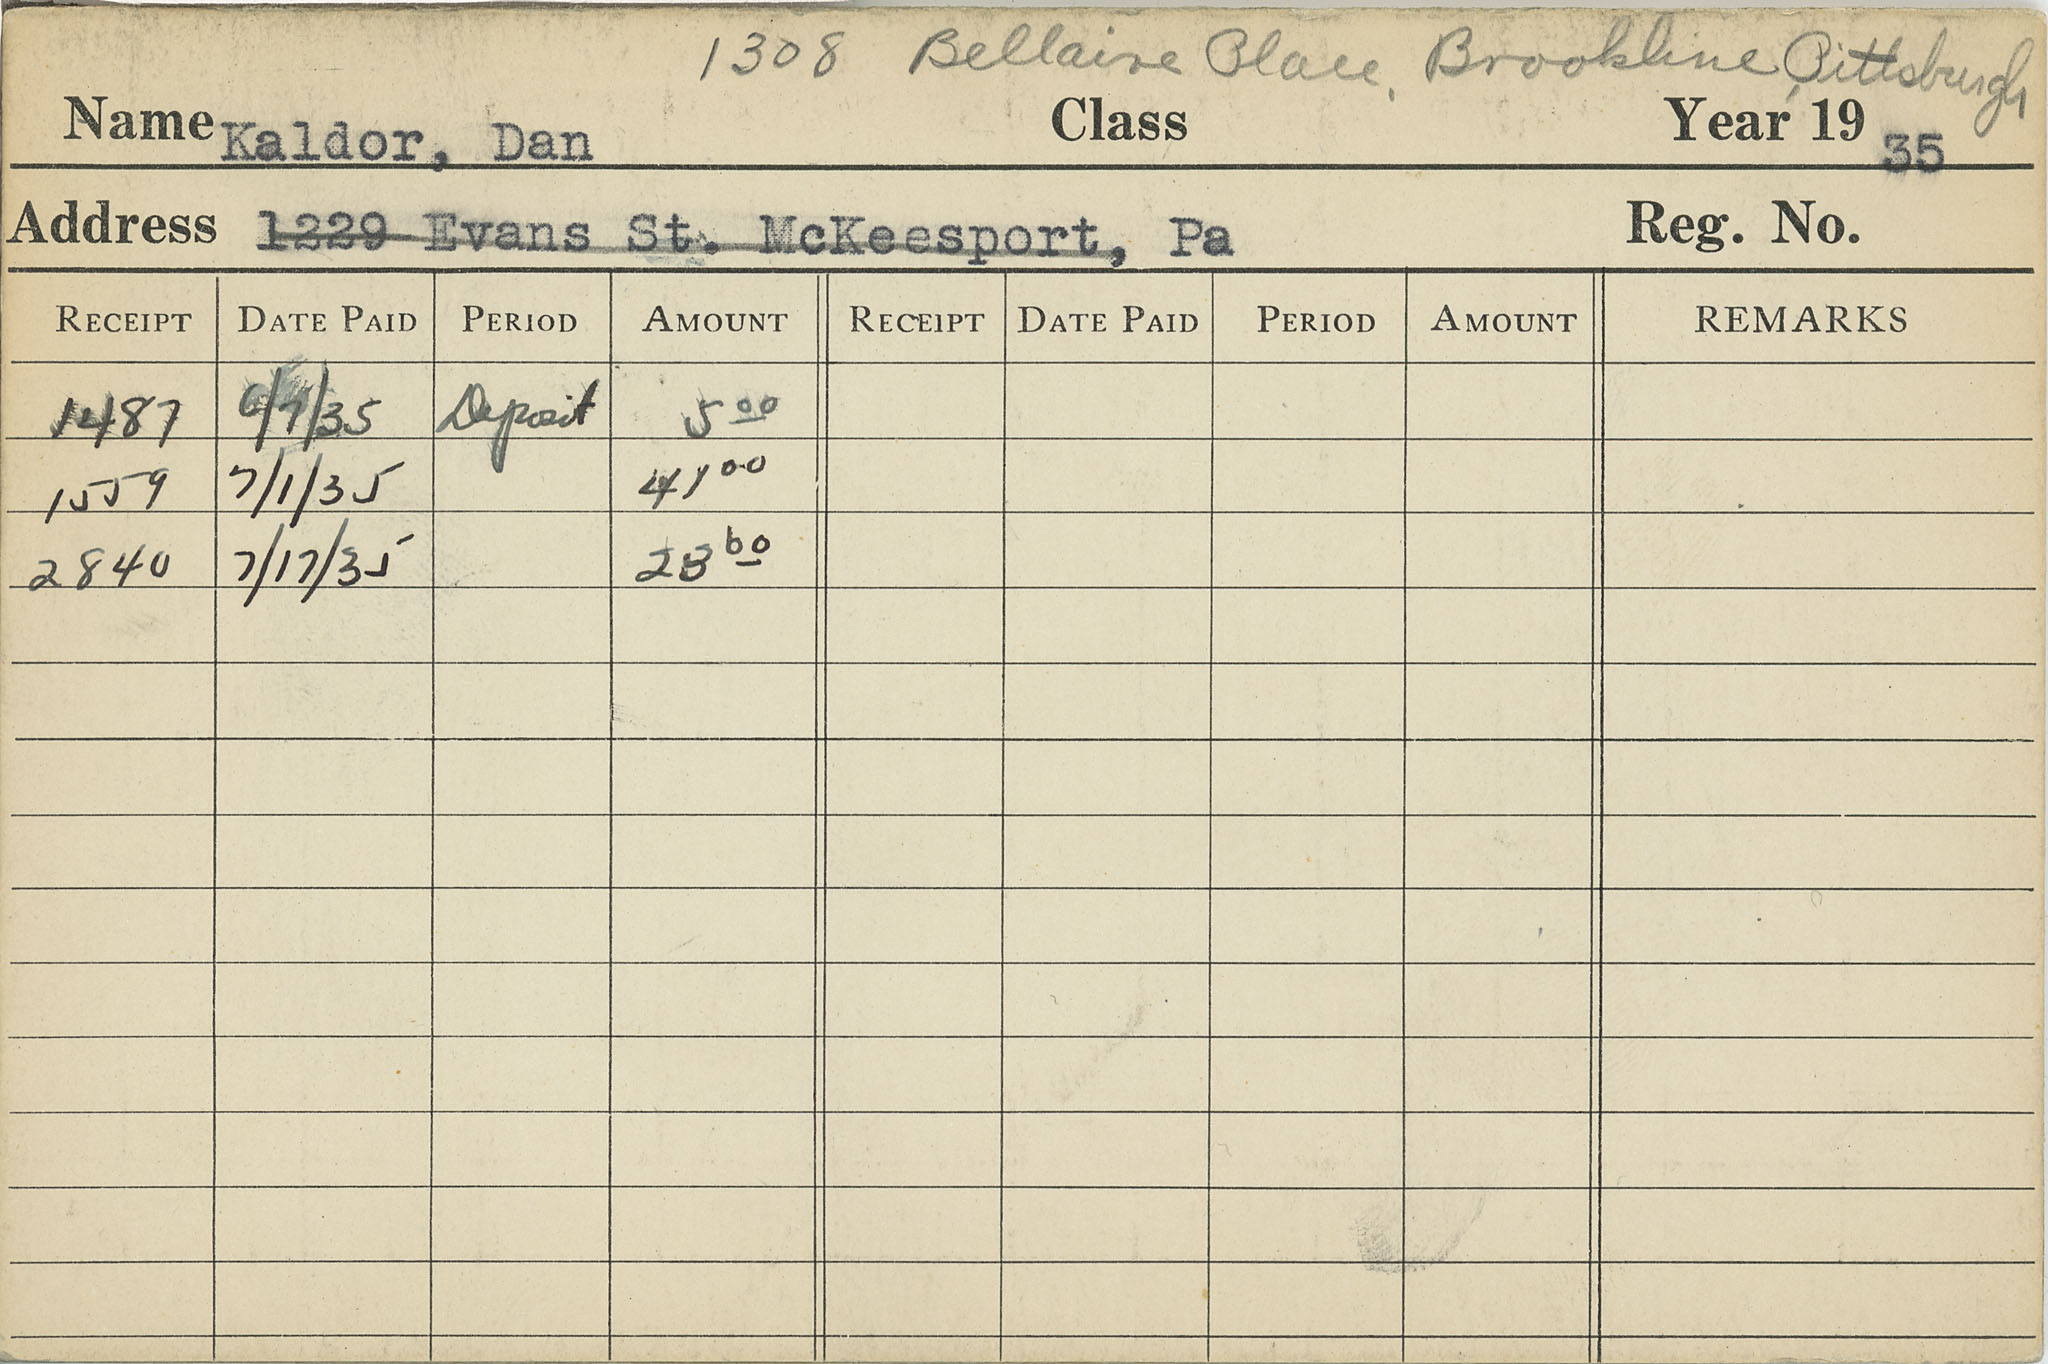 1308 Bellaire Place, Brookline, Pittsburgh
Name Kaldor, Dan Class Year 19 35
Address 1229 Evans St. McKeesport, Pa Reg. No.
RECEIPT DATE PAID PERIOD AMOUNT RECEIPT DATE PAID PERIOD AMOUNT REMARKS
1487 6/7/35 Deposit 5 00
1559 7/1/35 41 00
2840 7/17/35 23 60